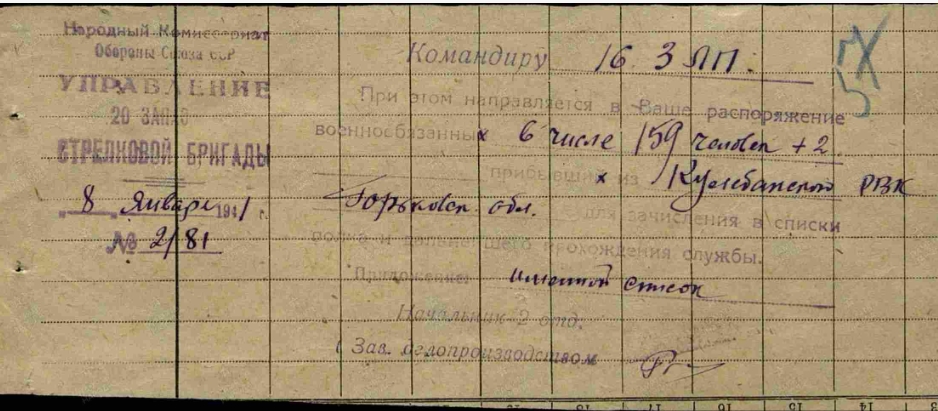 Народный Комиссариат
Обороны Союза ССР
УПРАВЛЕНИЕ
20 ЗАПАС
СТРЕЛКОВОЙ БРИГАДЫ
"8" Января 1941 г.
№ 2/81
Командиру 16 ЗЛП.
При этом направляется в Ваше распоряжение
военнообязанных в числе 159 человек +2
прибывших из Кулебакского РВК
Горьковск. обл. для зачисления в списки
полка и дальнейшего прохождения службы.
Приложение: именной список
Начальник 2 отд.
Зав. делопроизводством
13 14 15 16 17 18